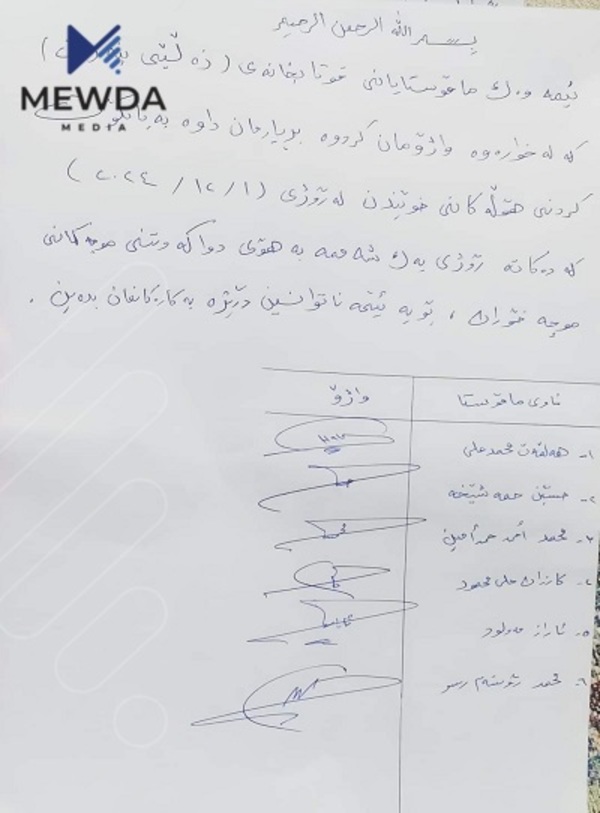 بسم الله الرحمن الرحيم
MEWDA
MEDIA
ئێمە وەك مامۆستایانی قوتابخانەی (
کە لە خوارەوە واژۆمان کردووە بڕیارمان داوە بە بایکۆت
کردنی هۆڵەکانی خوێندن لە ڕۆژی (١/١٢/٢٠٢٤)
کە دەکاتە ڕۆژی یەك شەممە بە هۆی دواکەوتنی موچەکانی
موچە خۆران ، بۆیە ئێمە ناتوانین درێژە بە کارەکانمان بدەین .
ناوی مامۆستا واژۆ
١- هەڵکەوت محمد علی
٢- حسێن حمە شێخە
٣- محمد احمد حمدأمین
٤- کارزان علی محمود
٥- ئاراز مەولود
٦- محمد ڕۆستەم رسو